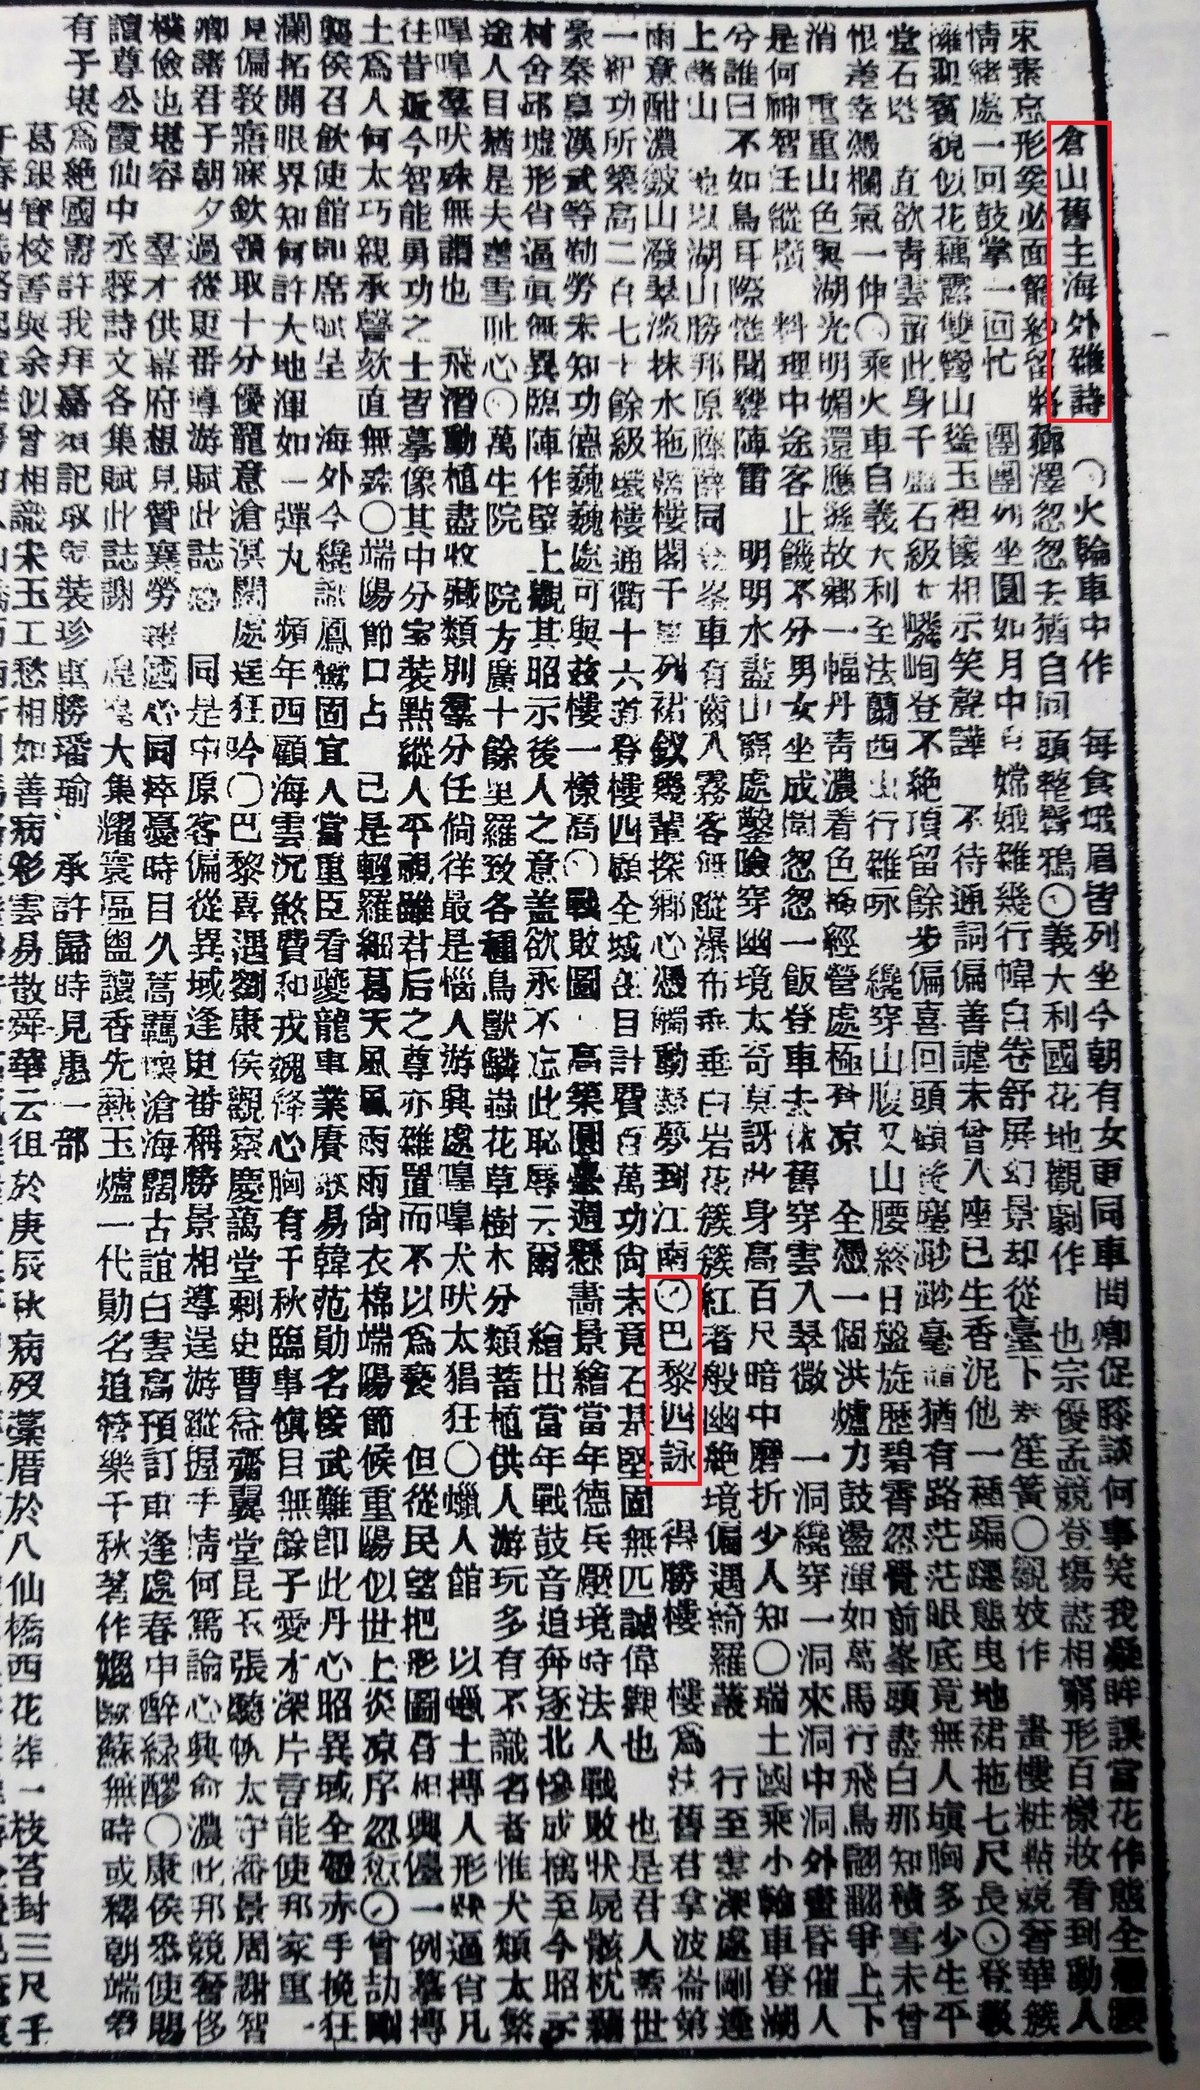 倉山舊主海外雜詩 〇火輪車中作 每食蛾眉皆列坐今朝有女更同車問卿促膝談何事笑我凝眸誤當花作態全腰
束素忘形奚必面籠紗留將薌澤忽忽去猶自同頭整鬢鴉〇義大利國花地觀劇作 也宗優孟競登場盡相窮形百樣妝看到動人
情緒處一回鼓掌一回忙 團團列坐圓如月中有嫦娥雜幾行幃白卷舒屏幻景却從臺下奏笙簧〇觀妓作 畫樓粧點競奢華簇
擁迎賓貌似花藕露雙彎山聳玉袒懷相示笑聲譁 不待通詞偏善謔未曾入座已生香泥他一種蹁躚態曳地裙拖七尺長〇登敎
堂石塔 直欲靑雲置此身千盤石級上嶙峋登不絕頂留餘步偏喜回頭顧後塵渺渺毫巔猶有路茫茫眼底竟無人塡胸多少生平
恨差幸憑欄氣一伸〇乘火車自義大利至法蘭西山行雜咏 纔穿山腹又山腰終日盤旋歷碧霄忽覺前峯頭盡白那知積雪未曾
消 重重山色與湖光明媚還應遜故鄉一幅丹靑濃着色極經營處極荒凉 全憑一個洪爐力鼓盪渾如萬馬行飛鳥翩翻爭上下
是何神智任縱橫 料理中途客止饑不分男女坐成圍忽忽一飯登車去依舊穿雲入翠微 一洞纔穿一洞來洞中洞外晝昏催人
兮誰曰不如鳥耳際惟聞響陣雷 明明水盡山窮處鑿險穿幽境太奇莫訝此身高百尺暗中磨折少人知〇瑞士國乘小輪車登湖
上諸山 地以湖山勝邦原同峯車有齒入霧客無蹤瀑布垂垂白岩花簇簇紅者般幽絕境偏遇綺羅叢 行至雲深處剛逢
雨意酣濃皴山潑翠淡抹水拖藍樓閣千重列裙釵幾輩探鄉心憑觸動歸夢到江南〇巴黎四詠 得勝樓 樓爲法舊君拿波崙第
一紀功所築高二百七十餘級螺樓通衢十六道登樓四顧全城在目計費百萬功尚未竟石基堅固無匹誠偉觀也 也是君人蓋世
豪秦皇漢武等勤勞未知功德巍巍處可與茲樓一樣高〇戰敗圖 高築圓臺週懸畫景繪當年德兵壓境時法人戰敗狀屍骸枕藉
村舍邱墟形省逼眞無異臨陣作壁上觀其昭示後人之意蓋欲永不忘此恥辱云爾 繪出當年戰鼓音追奔逐北慘成擒至今昭示
途人目猶是夫差雪耻心〇萬生院 院方廣十餘里羅致各種鳥獸鱗蟲花草樹木分類蓄植供人游玩多有不識名者惟犬類太繁
嘷嘷羣吠殊無謂也 飛潛動植盡收藏類別羣分任倘徉最是惱人游興處嘷嘷犬吠太猖狂〇蠟人館 以蠟土摶人形狀逼肖凡
往昔近今智能勇功之士皆摹像其中分室裝點縱人平視雖君后之尊亦雜置而不以爲褻 但從民望把形圖君相輿儓一例摹摶
土爲人何太巧親承謦欬直無殊〇端陽節口占 已是輕羅細葛天風風雨雨尙衣棉端陽節候重陽似世上炎凉序忽愆〇曾劼剛
襲侯召飲使館即席賦呈 海外今纔識鳳鸞固宜人當重臣看夔龍事業賡歌易韓范勛名接武難即此丹心昭異域全憑赤手挽狂
瀾拓開眼界知何許大地渾如一彈丸 頻年西顧海雲沉煞費和戎魏絳心胸有千秋臨事愼目無餘子愛才深片言能使邦家重一
見偏敎寤寐欽領取十分優寵意滄溟闊處逞狂吟〇巴黎喜遇劉康侯觀察慶藹堂剌史曹益齋翼堂昆玉張驥帆太守潘景周謝智
卿諸君子朝夕過從更番導游賦此誌感 同是中原客偏從異域逢更番稱勝景相導逞游蹤握手情何篤論心興俞濃此邦競奢侈
樸儉也堪容 羣才供幕府想見贊襄勞報國心同瘁憂時目久蒿羈懷滄海闊古誼白雲高預訂重逢處春申醉綠醪〇康侯使賜
讀尊公霞仙中丞蓉詩文各集賦此誌謝 煌煌大集耀寰區盥讀香先熱玉爐一代勛名追管樂千秋著作媲歐蘇無時或釋朝端
有子堪爲絕國需許我拜嘉須記取歸裝珍重勝璠瑜 承許歸時見惠一部
葛銀寶校書與余似曾相識宋玉工愁相如善病彩雲易散舜華云徂於庚辰秋病歿藁厝於八仙橋西花葬一枝苔封三尺手